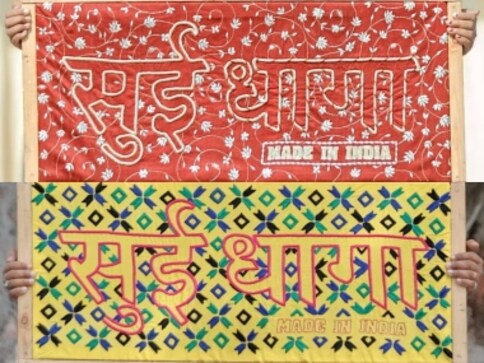 सुई धागा
MADE IN INDIA
सुई धागा
MADE IN INDIA